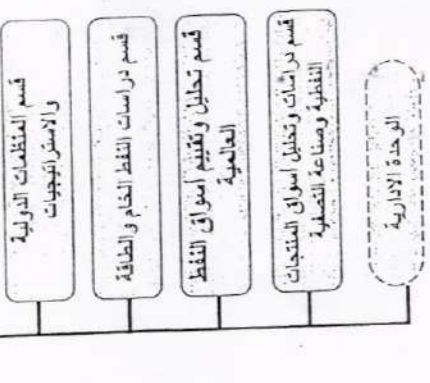 قسم المنظمات الدولية
والاستراتيجيات
قسم دراسات النفط الخام والطاقة
قسم تحليل وتقييم اسواق النفط
العالمية
قسم دراسات وتحليل اسواق المنتجات
النفطية وصناعة التصفية
الوحدة الادارية